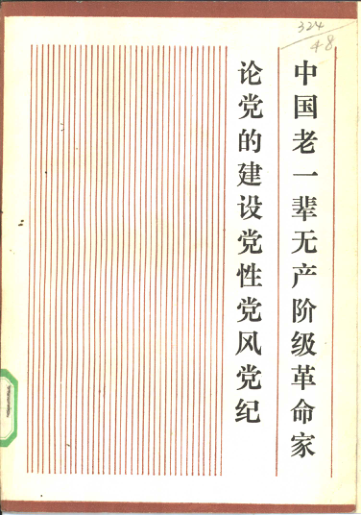 324
48
中国老一辈无产阶级革命家
论党的建设党性党风党纪